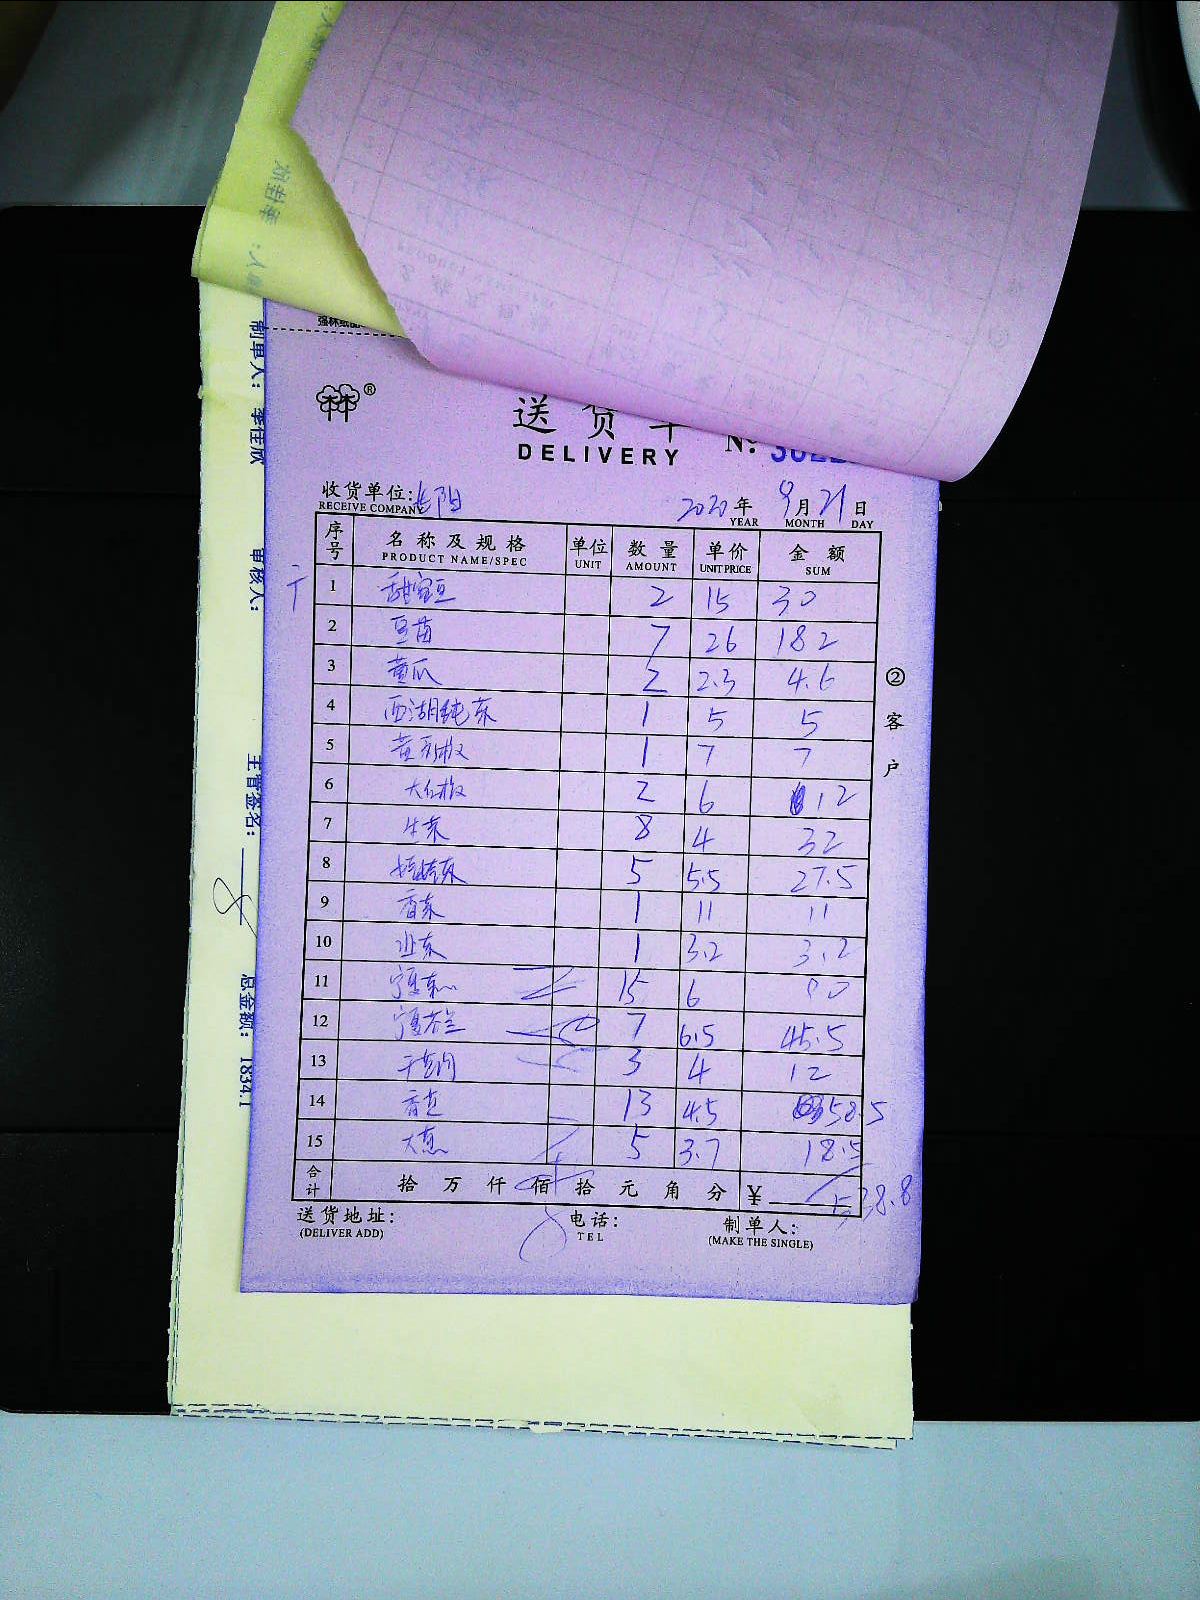 送货单
DELIVERY
收货单位:
RECEIVE COMPANY
2020 年 9 月 21 日
YEAR MONTH DAY
序号 名称及规格 单位 数量 单价 金额
PRODUCT NAME/SPEC UNIT AMOUNT UNIT PRICE SUM
1 甜蜜豆 2 15 30
2 豆苗 7 26 182
3 黄瓜 2 2.3 4.6
4 西湖纯菜 1 5 5
5 黄彩椒 1 7 7
6 大红椒 2 6 12
7 生菜 8 4 32
8 5 5.5 27.5
9 香菜 1 11 11
10 1 3.2 3.2
11 宁夏菜心 15 6 90
12 宁夏芥兰 7 6.5 45.5
13 干葱肉 3 4 12
14 香芝 13 4.5 58.5
15 大葱 5 3.7 18.5
合计 拾 万 仟 佰 拾 元 角 分 ¥ 538.8
送货地址:
(DELIVER ADD)
电话:
TEL
制单人:
(MAKE THE SINGLE)
② 客户
制单人: 李佳欣
审核人:
主管签名:
总金额: 1834.1